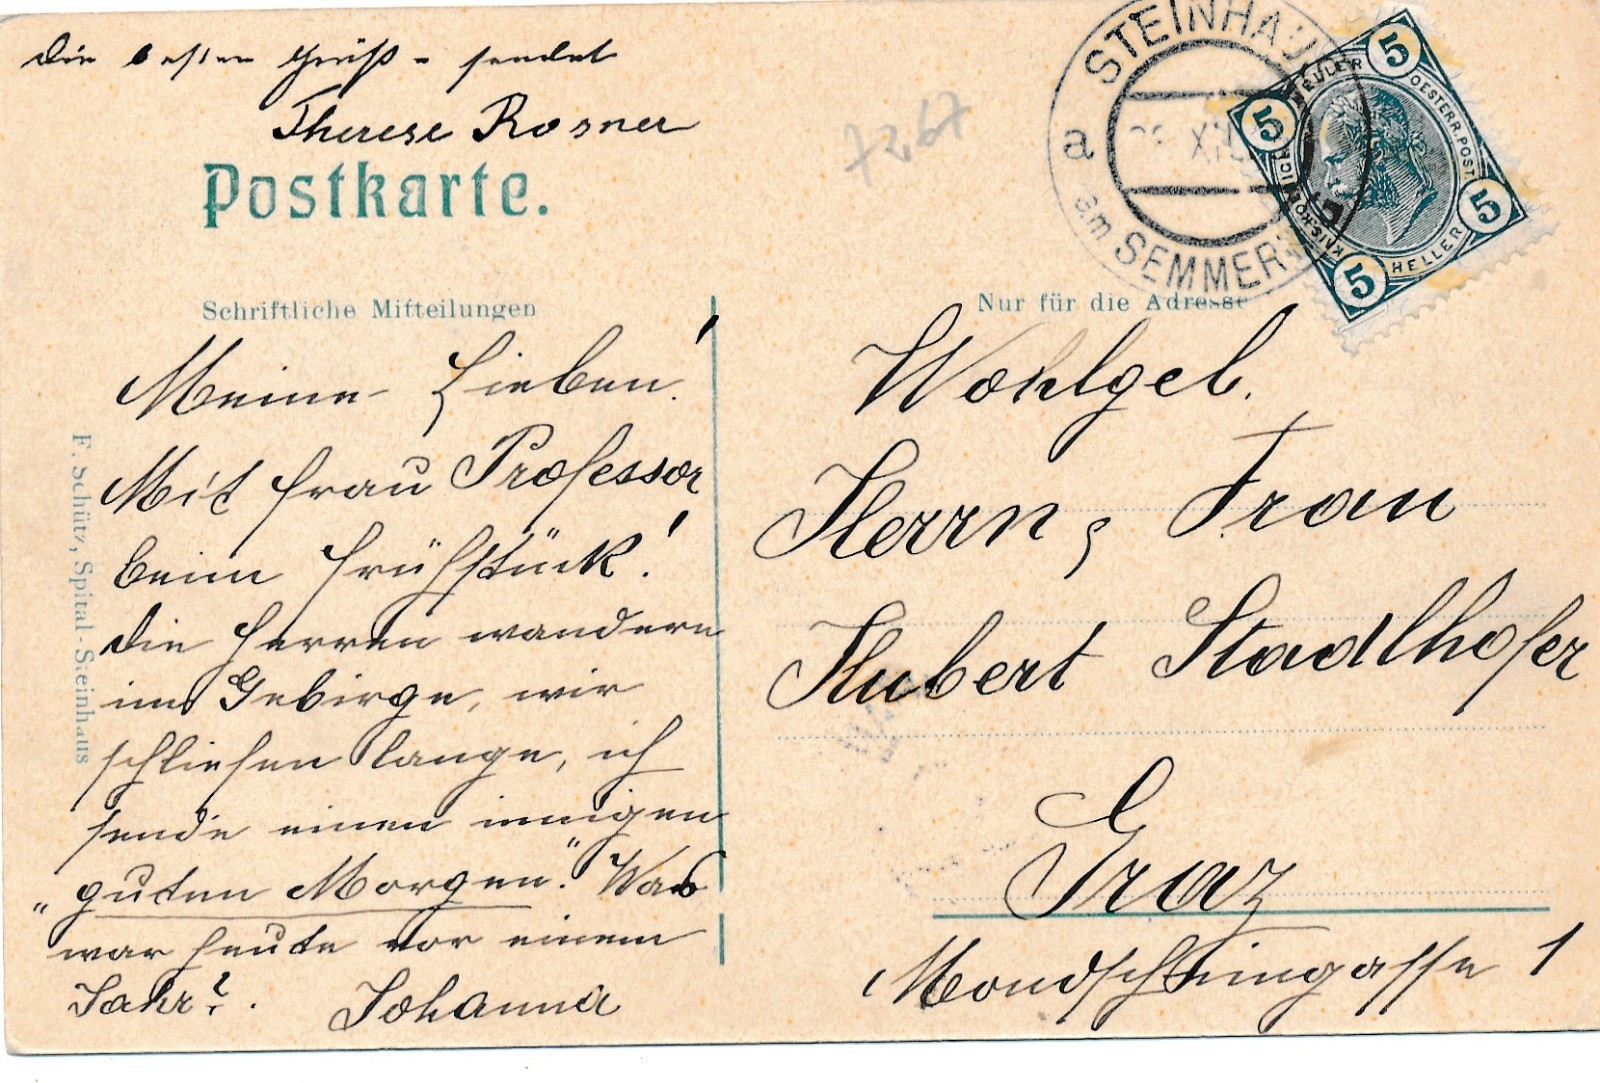 Die besten Grüße sendet
Therese Rosner
Postkarte.
Schriftliche Mitteilungen
Meine Lieben!
Mit Frau Professor
beim Frühstück!
Die Herren wandern
im Gebirge, wir
schliefen lange, ich
sende einen innigen
„guten Morgen". Was
war heute vor einem
Jahr?.
Johanna
F. Schütz, Spital-Steinhaus
72,67
STEINHAUS
a
am SEMMERING
5 5 5 5
KAIS. KÖNIGL. OESTERR. POST
HELLER HELLER
Nur für die Adresse
Wohlgeb.
Herrn, Frau
Hubert Stadlhofer
Graz
Mondscheingasse 1